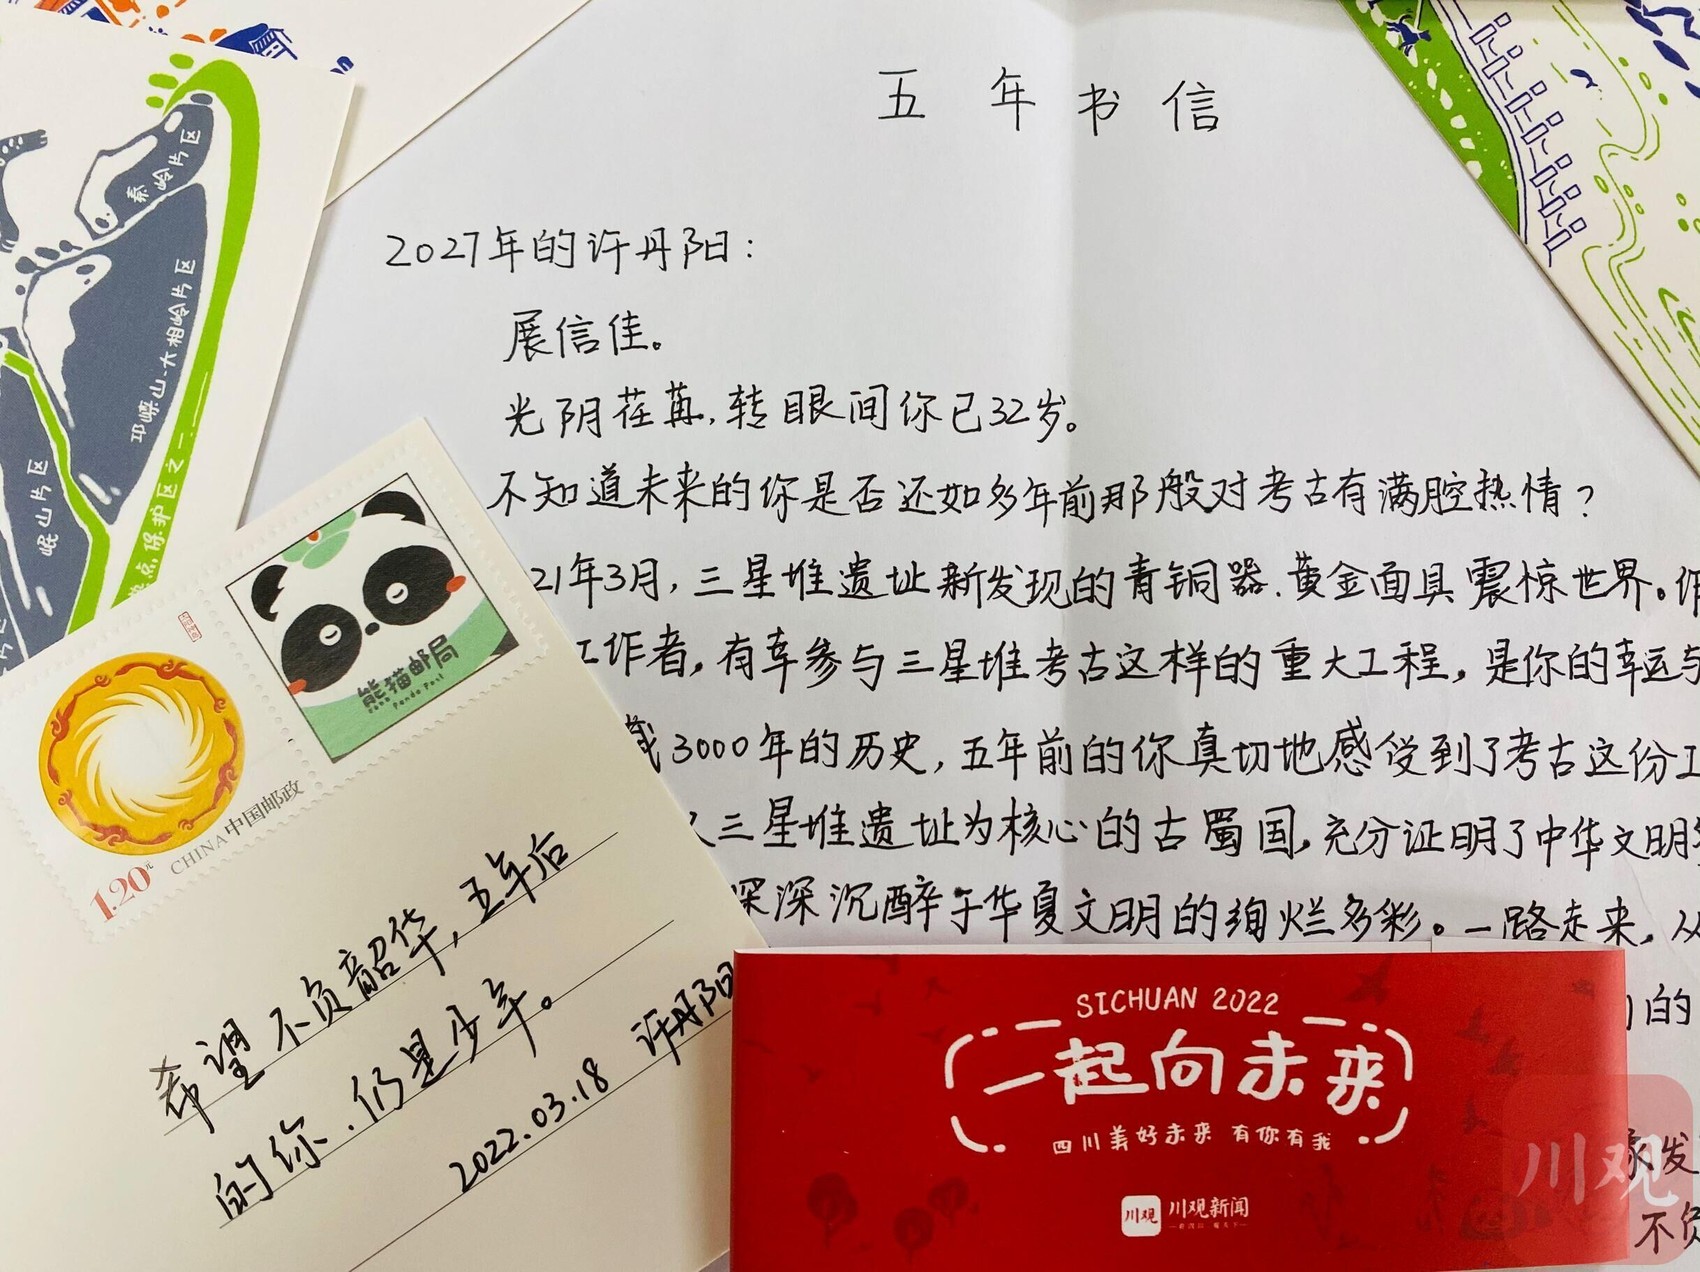 五年书信
2027年的许丹阳：
展信佳。
光阴荏苒，转眼间你已32岁。
不知道未来的你是否还如多年前那般对考古有满腔热情？
21年3月，三星堆遗址新发现的青铜器、黄金面具震惊世界。作
工作者，有幸参与三星堆考古这样的重大工程，是你的幸运与
3000年的历史，五年前的你真切地感受到了考古这份工
三星堆遗址为核心的古蜀国，充分证明了中华文明
深深沉醉于华夏文明的绚烂多彩。一路走来，从
的
发
不负
秦岭片区
邛崃山-大相岭片区
岷山片区
点保护区之一
片区
熊猫邮局
Panda Post
CHINA 中国邮政
1.20元
希望不负韶华，五年后
的你，仍是少年。
2022.03.18 许丹阳
SICHUAN 2022
一起向未来
四川美好未来 有你有我
川观
川观新闻
川观